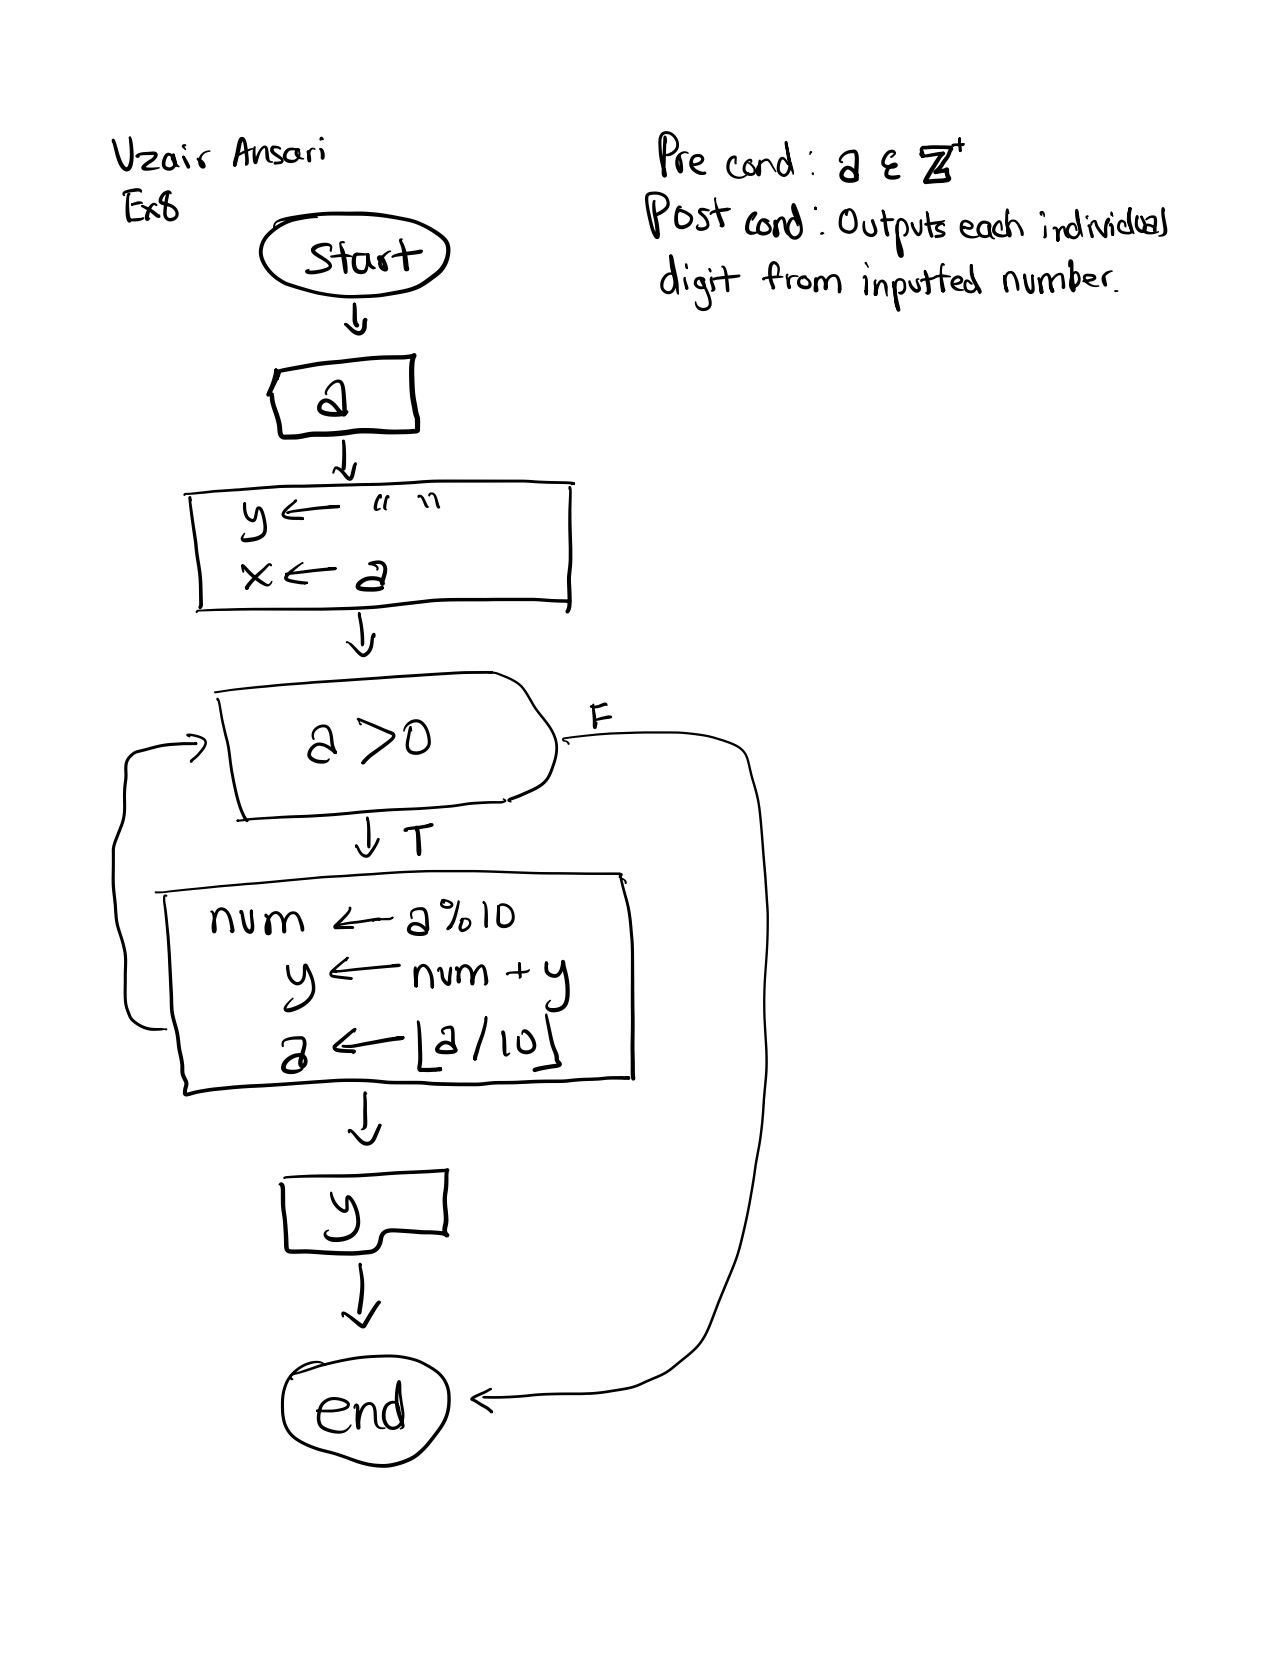 Uzair Ansari
Ex8
Pre cond: a ε ℤ⁺
Post cond: Outputs each individual
digit from inputted number.
Start
a
y ← “ ”
x ← a
a > 0
F
T
num ← a%10
y ← num + y
a ← ⌊a/10⌋
y
end